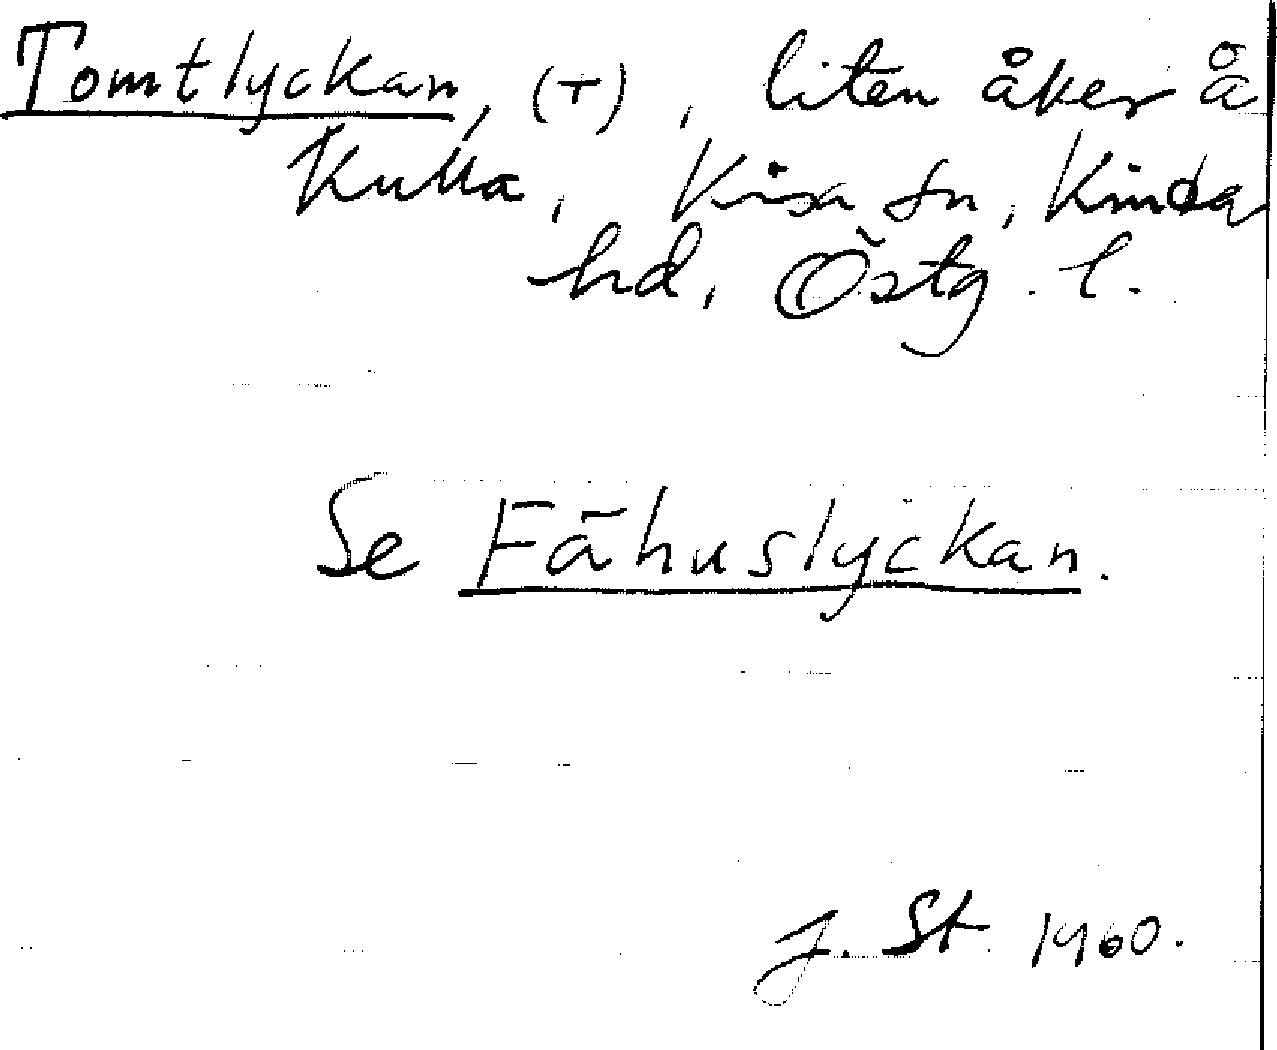 Tomtlyckan, (+), liten åker å
Kulla, Kisa sn, Kinda
hd, Östg. l.
Se Fähuslyckan.
J. St 1960.